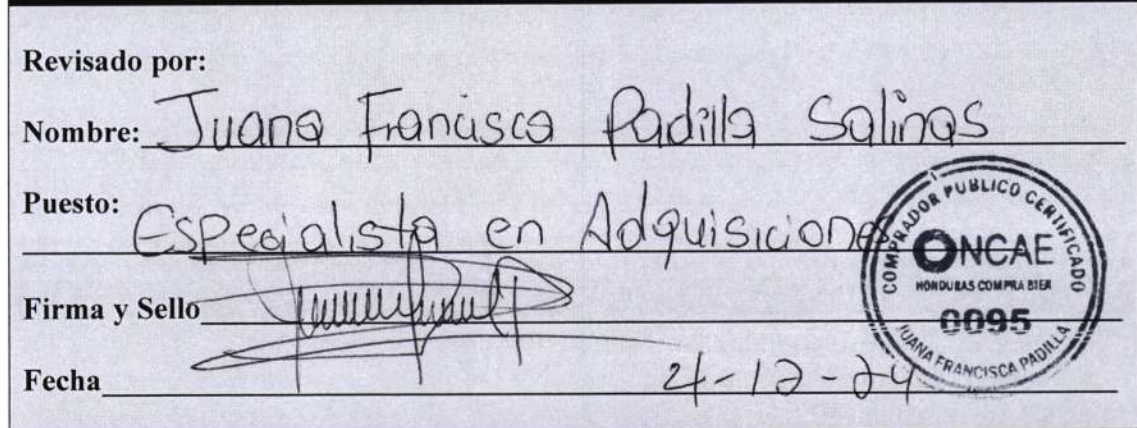 Revisado por:
Nombre: Juana Francisca Padilla Salinas
Puesto: Especialista en Adquisiciones
Firma y Sello
Fecha 4-12-24
COMPRADOR PUBLICO CERTIFICADO
ONCAE
HONDURAS COMPRA BIEN
0095
JUANA FRANCISCA PADILLA